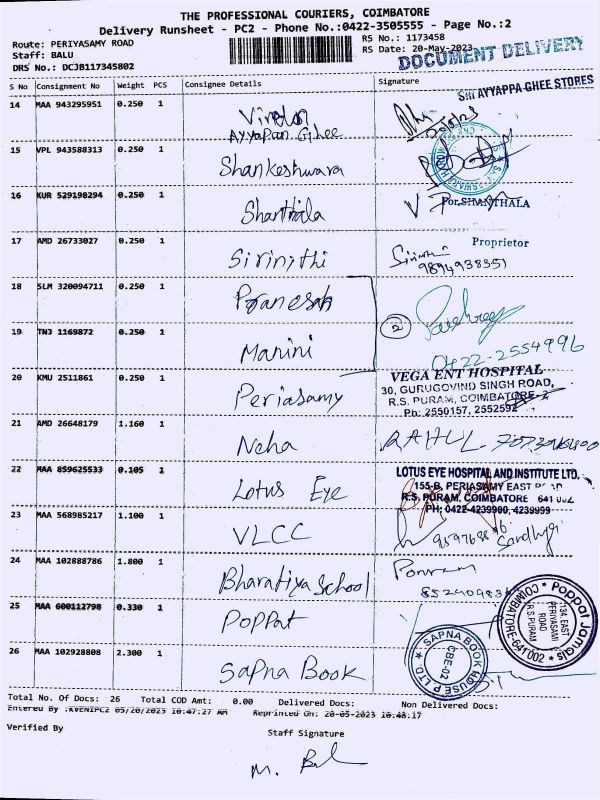 THE PROFESSIONAL COURIERS, COIMBATORE
Delivery Runsheet - PC2 - Phone No.:0422-3505555 - Page No.:2
Route: PERIYASAMY ROAD
RS No.: 1173458
Staff: BALU
RS Date: 20-May-2023
DRS No.: DCJB117345802
DOCUMENT DELIVERY
S No Consignment No Weight PCS Consignee Details Signature
SRI AYYAPPA GHEE STORES
14 MAA 943295951 0.250 1
Ayyapan Ghee
15 VPL 943588313 0.250 1 Shankeshwara
16 KUR 529198294 0.250 1 Shanthala
For SHANTHALA
Proprietor
17 AMD 26733027 0.250 1 Sirinithi
9894938351
18 SLM 320094711 0.250 1 Pranesah
2
19 TNJ 1169872 0.250 1 Manini
0422-2554996
20 KMU 2511861 0.250 1 Periasamy
VEGA ENT HOSPITAL
30, GURUGOVIND SINGH ROAD,
R.S. PURAM, COIMBATORE-2
Ph: 2550157, 2552592
21 AMD 26648179 1.160 1 Neha RAHUL
22 MAA 859625533 0.105 1 Lotus Eye
LOTUS EYE HOSPITAL AND INSTITUTE LTD.
155-B, PERIASAMY EAST ROAD
R.S. PURAM, COIMBATORE 641 002
PH: 0422-4239900, 4239999
23 MAA 568985217 1.100 1 VLCC
24 MAA 102888786 1.800 1 Bharatiya School
25 MAA 600112798 0.330 1 Poppat
Poppat Jamals
134, EAST
PERIYASAMI
ROAD
R.S PURAM
COIMBATORE-641 002
26 MAA 102928808 2.300 1 Sapna Book
SAPNA BOOK HOUSE P LTD
CBE-02
Total No. Of Docs: 26 Total COD Amt: 0.00 Delivered Docs: Non Delivered Docs:
Entered By :KVENIPC2 05/20/2023 10:47:27 AM Reprinted On: 20-05-2023 10:48:17
Verified By
Staff Signature
M. Bal